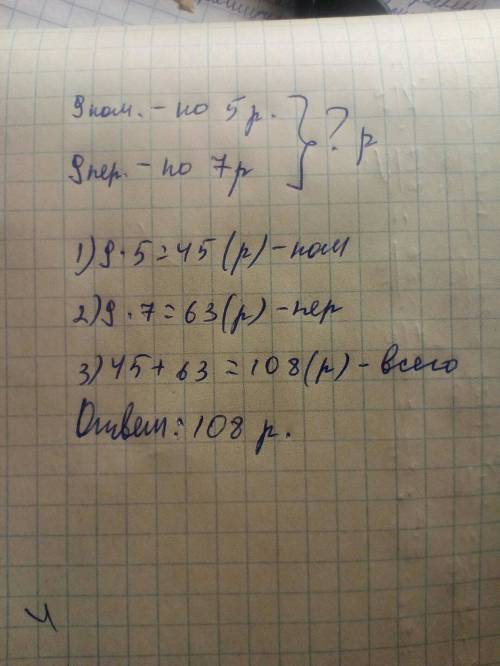 9 пом. - по 5 р. } ? р
9 пер. - по 7 р
1) 9 · 5 = 45 (р) - пом
2) 9 · 7 = 63 (р) - пер
3) 45 + 63 = 108 (р) - всего
Ответ: 108 р.